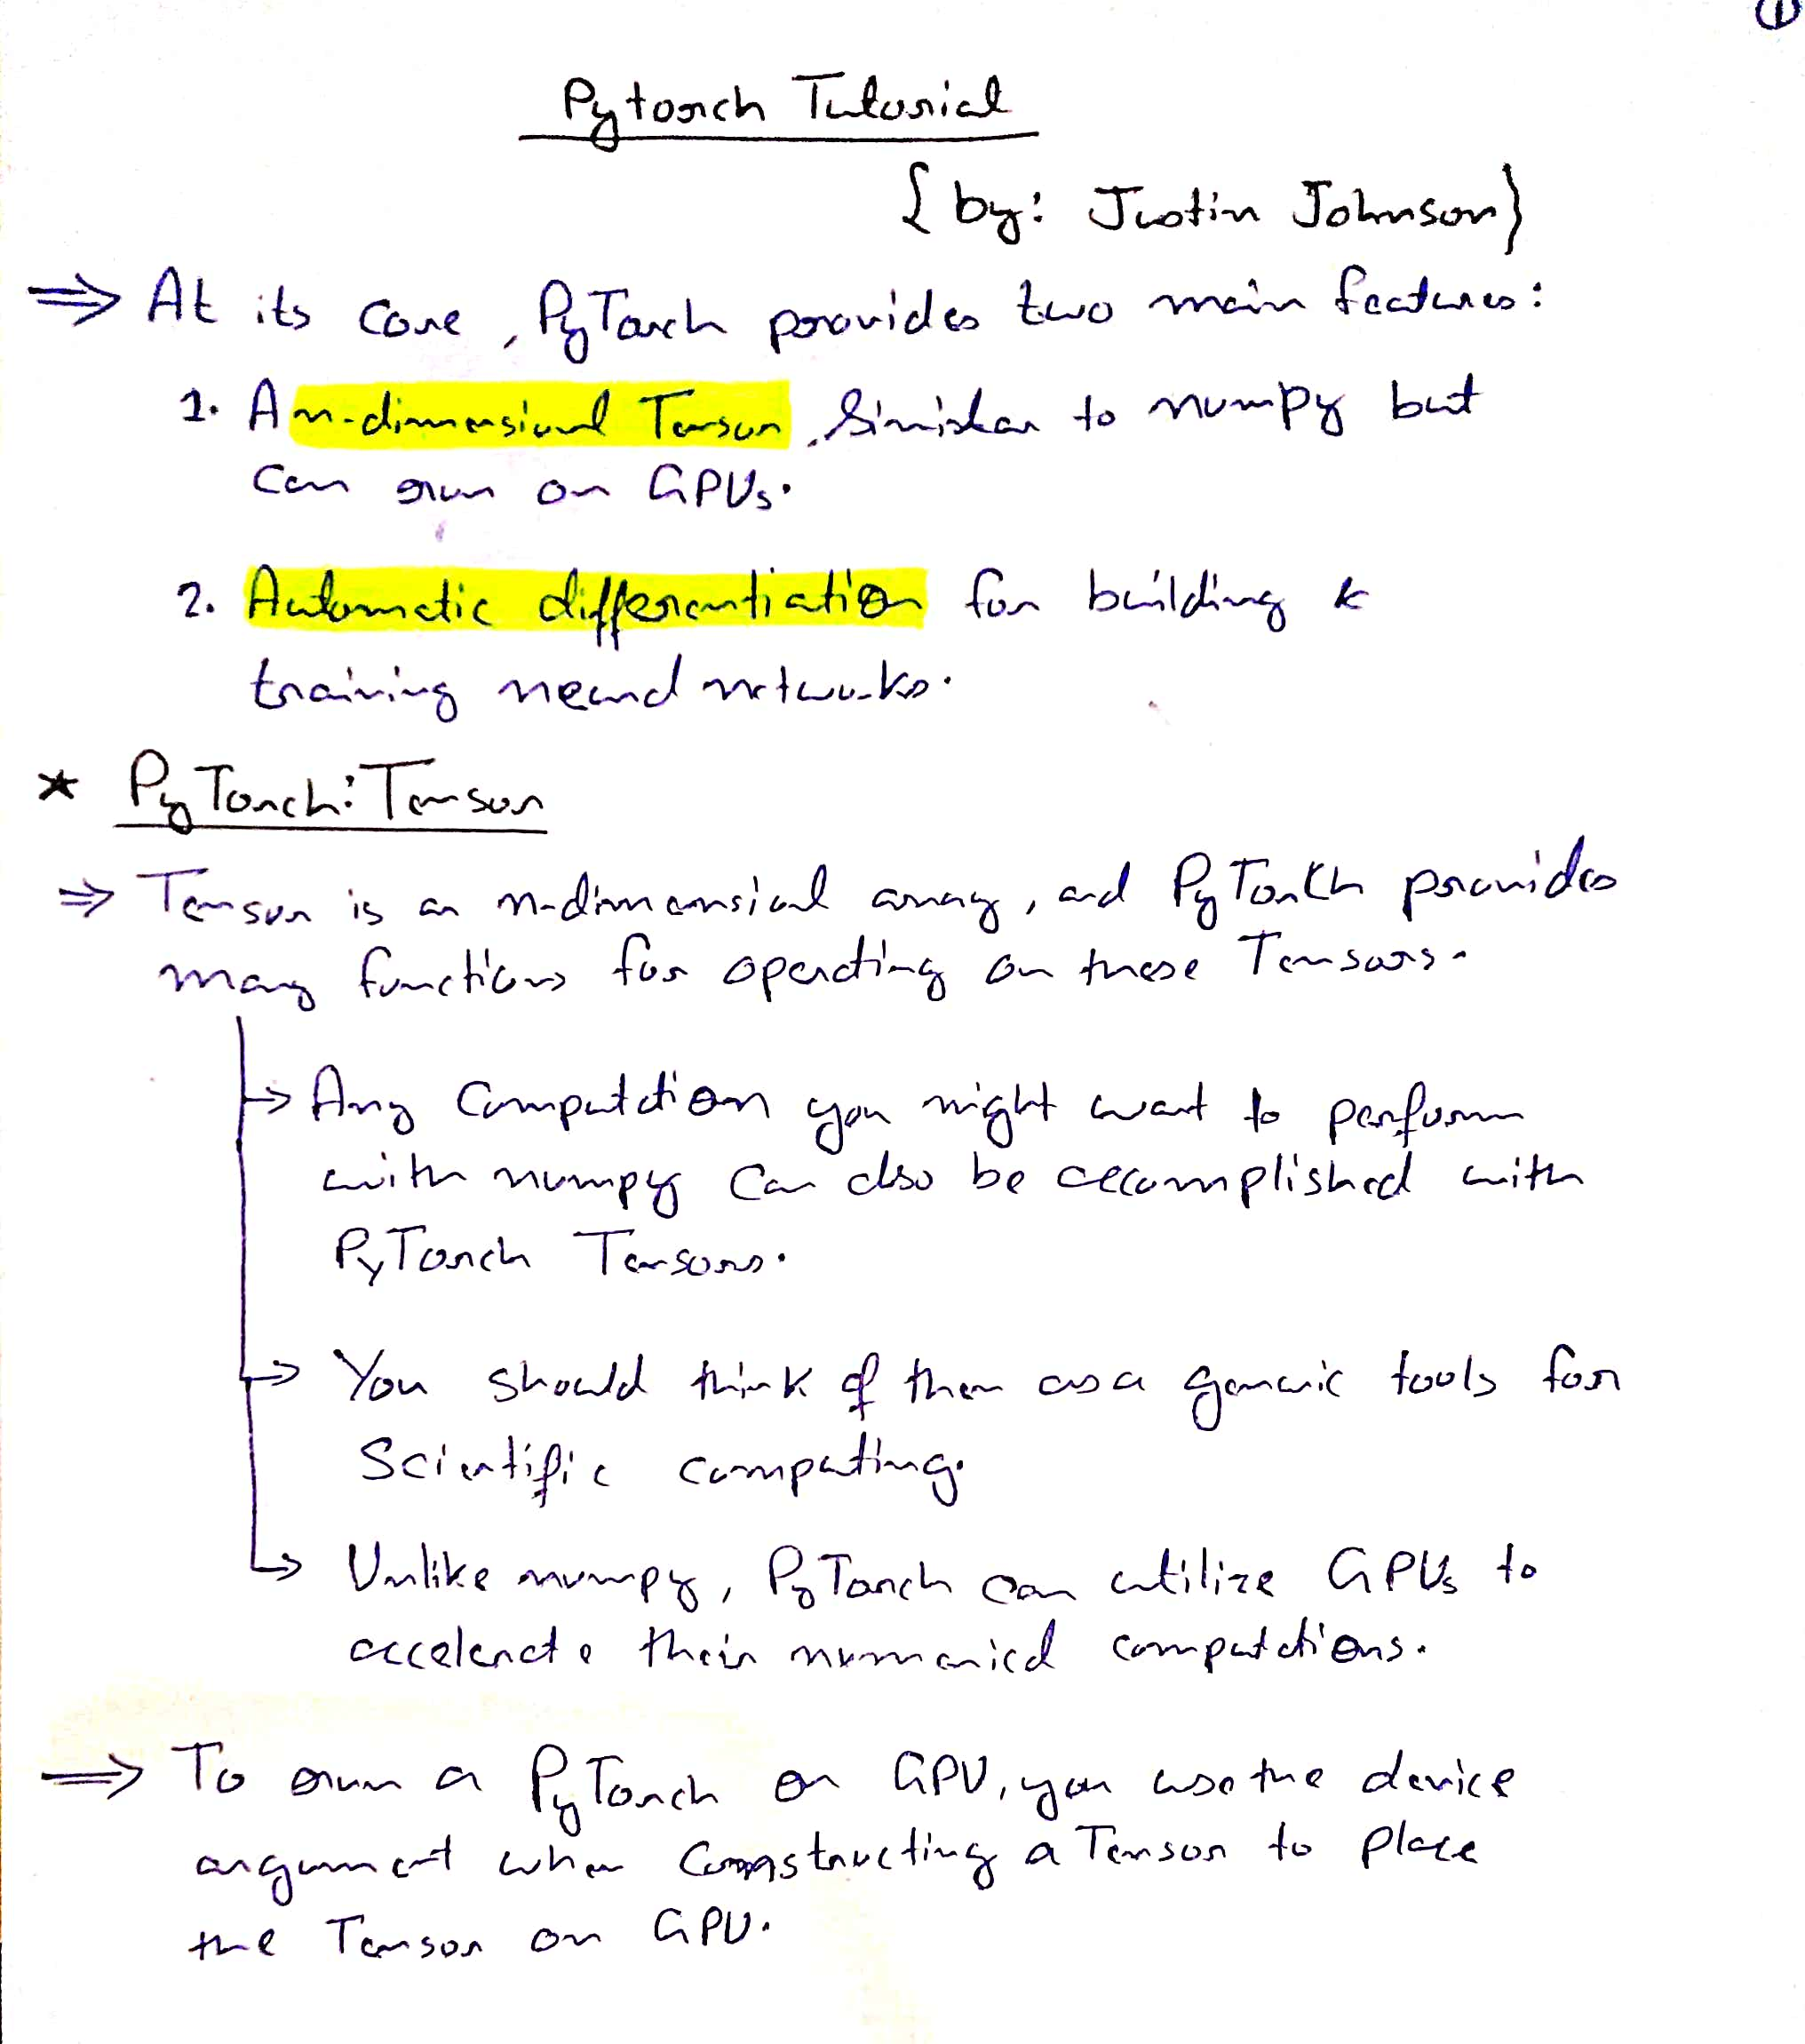 ①
Pytorch Tutorial
{by: Justin Johnson}
⇒ At its core, PyTorch provides two main features:
1. A n-dimensional Tensor, similar to numpy but
can run on GPUs.
2. Automatic differentiation for building &
training neural networks.
* PyTorch: Tensor
⇒ Tensor is an n-dimensional array, and PyTorch provides
many functions for operating on these Tensors.
→ Any Computation you might want to perform
with numpy can also be accomplished with
PyTorch Tensors.
→ You should think of them as a generic tools for
Scientific computing.
→ Unlike numpy, PyTorch can utilize GPUs to
accelerate their numerical computations.
⇒ To run a PyTorch on GPU, you use the device
argument when Constructing a Tensor to place
the Tensor on GPU.